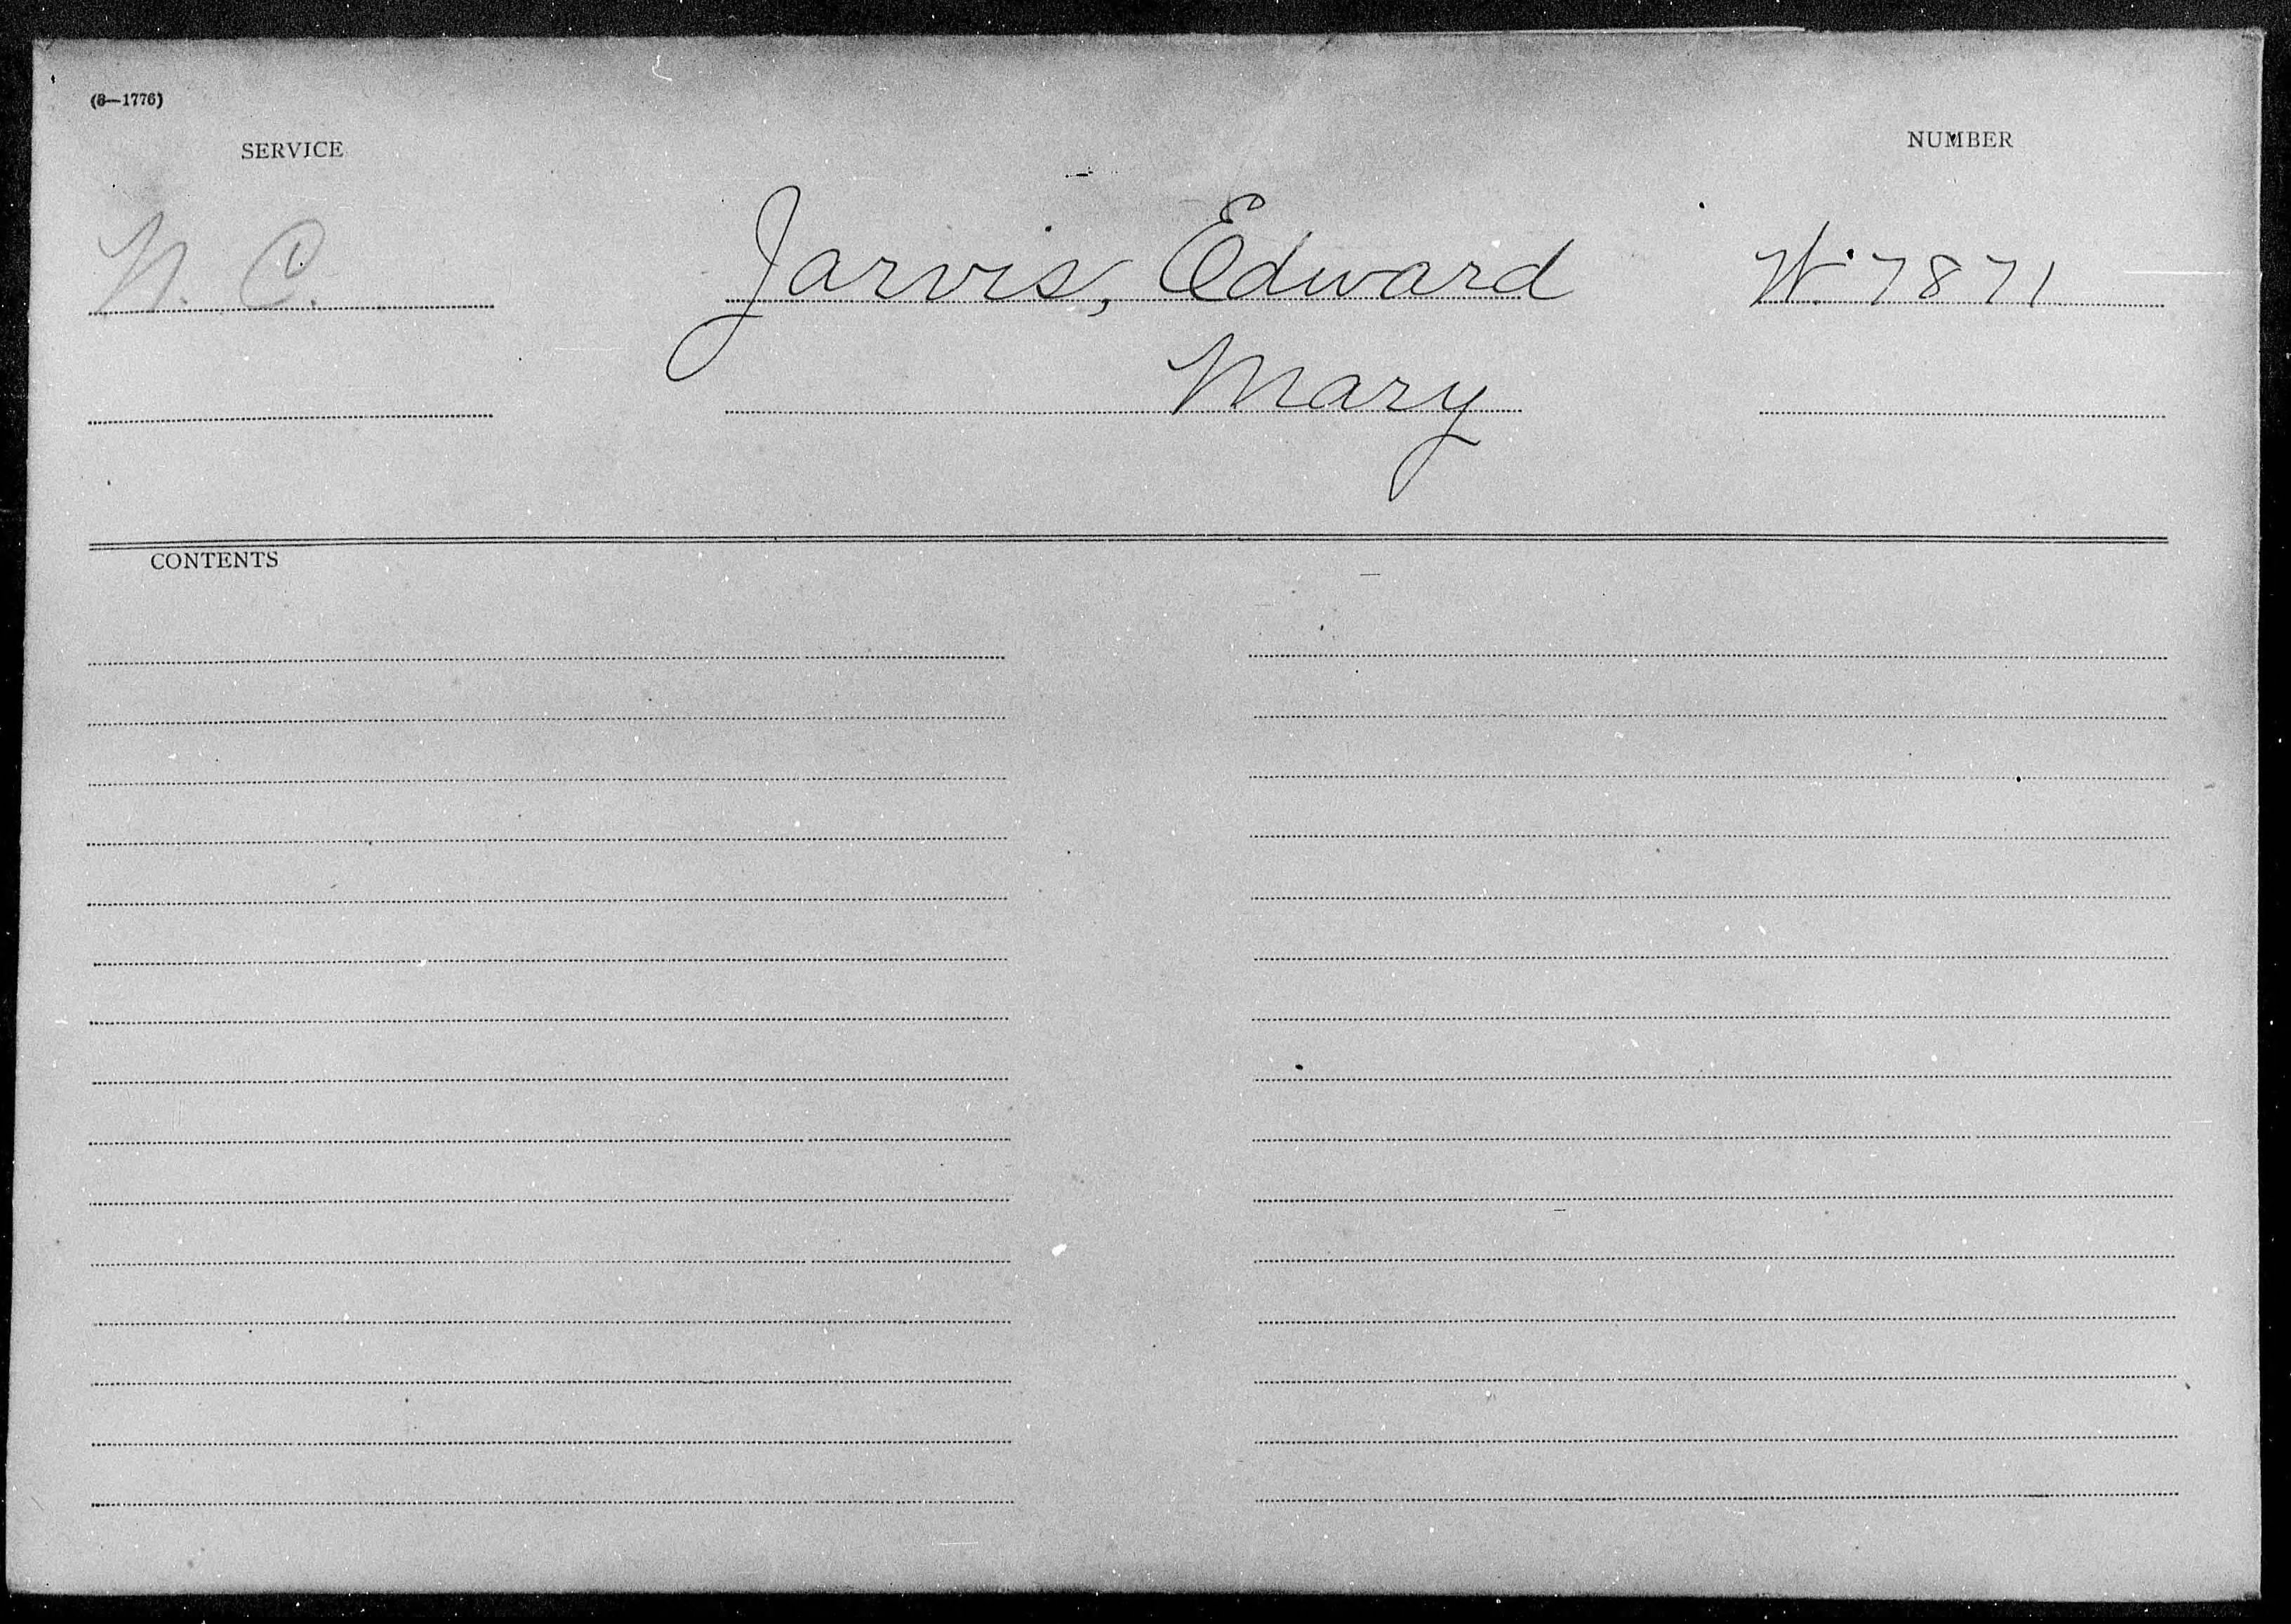 (3—1776)
SERVICE
NUMBER
N. C.
Jarvis, Edward
W. 7871
Mary
CONTENTS